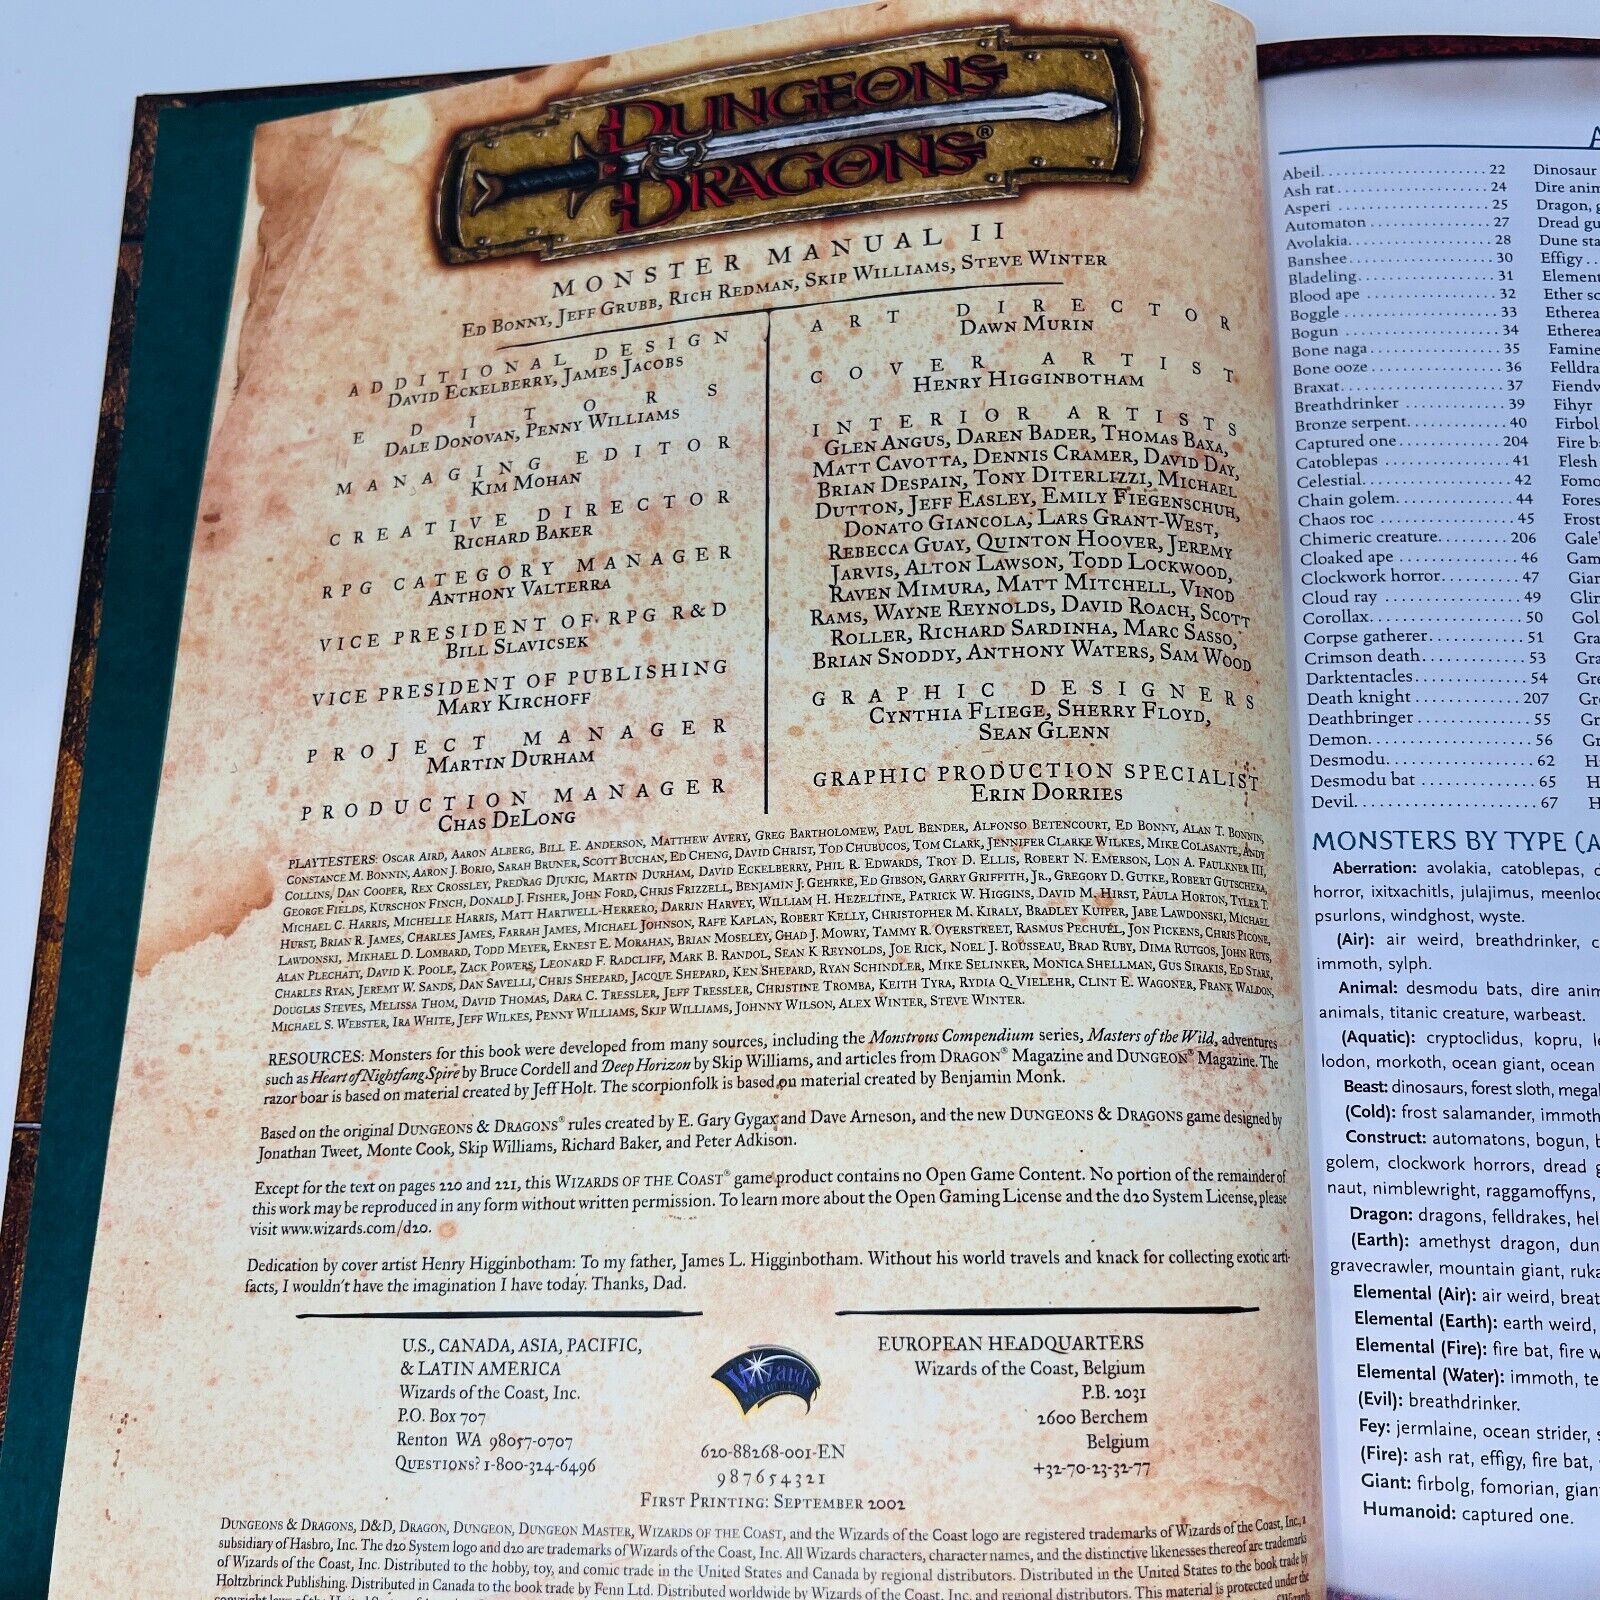 DUNGEONS
& DRAGONS®
MONSTER MANUAL II
ED BONNY, JEFF GRUBB, RICH REDMAN, SKIP WILLIAMS, STEVE WINTER
ADDITIONAL DESIGN
DAVID ECKELBERRY, JAMES JACOBS
EDITORS
DALE DONOVAN, PENNY WILLIAMS
MANAGING EDITOR
KIM MOHAN
CREATIVE DIRECTOR
RICHARD BAKER
RPG CATEGORY MANAGER
ANTHONY VALTERRA
VICE PRESIDENT OF RPG R&D
BILL SLAVICSEK
VICE PRESIDENT OF PUBLISHING
MARY KIRCHOFF
PROJECT MANAGER
MARTIN DURHAM
PRODUCTION MANAGER
CHAS DELONG
ART DIRECTOR
DAWN MURIN
COVER ARTIST
HENRY HIGGINBOTHAM
INTERIOR ARTISTS
GLEN ANGUS, DAREN BADER, THOMAS BAXA,
MATT CAVOTTA, DENNIS CRAMER, DAVID DAY,
BRIAN DESPAIN, TONY DITERLIZZI, MICHAEL
DUTTON, JEFF EASLEY, EMILY FIEGENSCHUH,
DONATO GIANCOLA, LARS GRANT-WEST,
REBECCA GUAY, QUINTON HOOVER, JEREMY
JARVIS, ALTON LAWSON, TODD LOCKWOOD,
RAVEN MIMURA, MATT MITCHELL, VINOD
RAMS, WAYNE REYNOLDS, DAVID ROACH, SCOTT
ROLLER, RICHARD SARDINHA, MARC SASSO,
BRIAN SNODDY, ANTHONY WATERS, SAM WOOD
GRAPHIC DESIGNERS
CYNTHIA FLIEGE, SHERRY FLOYD,
SEAN GLENN
GRAPHIC PRODUCTION SPECIALIST
ERIN DORRIES
PLAYTESTERS: OSCAR AIRD, AARON ALBERG, BILL E. ANDERSON, MATTHEW AVERY, GREG BARTHOLOMEW, PAUL BENDER, ALFONSO BETENCOURT, ED BONNY, ALAN T. BONNIN,
CONSTANCE M. BONNIN, AARON J. BORIO, SARAH BRUNER, SCOTT BUCHAN, ED CHENG, DAVID CHRIST, TOD CHUBUCOS, TOM CLARK, JENNIFER CLARKE WILKES, MIKE COLASANTE, ANDY
COLLINS, DAN COOPER, REX CROSSLEY, PREDRAG DJUKIC, MARTIN DURHAM, DAVID ECKELBERRY, PHIL R. EDWARDS, TROY D. ELLIS, ROBERT N. EMERSON, LON A. FAULKNER III,
GEORGE FIELDS, KURSCHON FINCH, DONALD J. FISHER, JOHN FORD, CHRIS FRIZZELL, BENJAMIN J. GEHRKE, ED GIBSON, GARRY GRIFFITH, JR., GREGORY D. GUTKE, ROBERT GUTSCHERA,
MICHAEL C. HARRIS, MICHELLE HARRIS, MATT HARTWELL-HERRERO, DARRIN HARVEY, WILLIAM H. HEZELTINE, PATRICK W. HIGGINS, DAVID M. HIRST, PAULA HORTON, TYLER T.
HURST, BRIAN R. JAMES, CHARLES JAMES, FARRAH JAMES, MICHAEL JOHNSON, RAFE KAPLAN, ROBERT KELLY, CHRISTOPHER M. KIRALY, BRADLEY KUIPER, JABE LAWDONSKI, MICHAEL
LAWDONSKI, MIKHAEL D. LOMBARD, TODD MEYER, ERNEST E. MORAHAN, BRIAN MOSELEY, GHAD J. MOWRY, TAMMY R. OVERSTREET, RASMUS PECHUEL, JON PICKENS, CHRIS PICONE,
ALAN PLECHATY, DAVID K. POOLE, ZACK POWERS, LEONARD F. RADCLIFF, MARK B. RANDOL, SEAN K REYNOLDS, JOE RICK, NOEL J. ROUSSEAU, BRAD RUBY, DIMA RUTGOS, JOHN RUYS,
CHARLES RYAN, JEREMY W. SANDS, DAN SAVELLI, CHRIS SHEPARD, JACQUE SHEPARD, KEN SHEPARD, RYAN SCHINDLER, MIKE SELINKER, MONICA SHELLMAN, GUS SIRAKIS, ED STARK,
DOUGLAS STEVES, MELISSA THOM, DAVID THOMAS, DARA C. TRESSLER, JEFF TRESSLER, CHRISTINE TROMBA, KEITH TYRA, RYDIA Q. VIELEHR, CLINT E. WAGONER, FRANK WALDON,
MICHAEL S. WEBSTER, IRA WHITE, JEFF WILKES, PENNY WILLIAMS, SKIP WILLIAMS, JOHNNY WILSON, ALEX WINTER, STEVE WINTER.
RESOURCES: Monsters for this book were developed from many sources, including the Monstrous Compendium series, Masters of the Wild, adventures
such as Heart of Nightfang Spire by Bruce Cordell and Deep Horizon by Skip Williams, and articles from DRAGON® Magazine and DUNGEON® Magazine. The
razor boar is based on material created by Jeff Holt. The scorpionfolk is based on material created by Benjamin Monk.
Based on the original DUNGEONS & DRAGONS® rules created by E. Gary Gygax and Dave Arneson, and the new DUNGEONS & DRAGONS game designed by
Jonathan Tweet, Monte Cook, Skip Williams, Richard Baker, and Peter Adkison.
Except for the text on pages 220 and 221, this WIZARDS OF THE COAST® game product contains no Open Game Content. No portion of the remainder of
this work may be reproduced in any form without written permission. To learn more about the Open Gaming License and the d20 System License, please
visit www.wizards.com/d20.
Dedication by cover artist Henry Higginbotham: To my father, James L. Higginbotham. Without his world travels and knack for collecting exotic arti-
facts, I wouldn't have the imagination I have today. Thanks, Dad.
U.S., CANADA, ASIA, PACIFIC,
& LATIN AMERICA
Wizards of the Coast, Inc.
P.O. Box 707
Renton WA 98057-0707
QUESTIONS? 1-800-324-6496
Wizards
620-88268-001-EN
9 8 7 6 5 4 3 2 1
FIRST PRINTING: SEPTEMBER 2002
EUROPEAN HEADQUARTERS
Wizards of the Coast, Belgium
P.B. 2031
2600 Berchem
Belgium
+32-70-23-32-77
DUNGEONS & DRAGONS, D&D, DRAGON, DUNGEON, DUNGEON MASTER, WIZARDS OF THE COAST, and the Wizards of the Coast logo are registered trademarks of Wizards of the Coast, Inc., a
subsidiary of Hasbro, Inc. The d20 System logo and d20 are trademarks of Wizards of the Coast, Inc. All Wizards characters, character names, and the distinctive likenesses thereof are trademarks
of Wizards of the Coast, Inc. Distributed to the hobby, toy, and comic trade in the United States and Canada by regional distributors. Distributed in the United States to the book trade by
Holtzbrinck Publishing. Distributed in Canada to the book trade by Fenn Ltd. Distributed worldwide by Wizards of the Coast, Inc. and regional distributors. This material is protected under the
Abeil 22
Ash rat 24
Asperi 25
Automaton 27
Avolakia 28
Banshee 30
Bladeling 31
Blood ape 32
Boggle 33
Bogun 34
Bone naga 35
Bone ooze 36
Braxat 37
Breathdrinker 39
Bronze serpent 40
Captured one 204
Catoblepas 41
Celestial 42
Chain golem 44
Chaos roc 45
Chimeric creature 206
Cloaked ape 46
Clockwork horror 47
Cloud ray 49
Corollax 50
Corpse gatherer 51
Crimson death 53
Darktentacles 54
Death knight 207
Deathbringer 55
Demon 56
Desmodu 62
Desmodu bat 65
Devil 67
Dinosaur
Dire anim
Dragon, g
Dread gu
Dune sta
Effigy
Element
Ether sc
Etherea
Etherea
Famine
Felldra
Fiendv
Fihyr
Firbol
Fire b
Flesh
Fomo
Fores
Frost
Gale
Gam
Gian
Glin
Gol
Gra
Gra
Gre
Gr
Gr
Gr
H
H
H
MONSTERS BY TYPE (A
Aberration: avolakia, catoblepas, d
horror, ixitxachitls, julajimus, meenloc
psurlons, windghost, wyste.
(Air): air weird, breathdrinker, c
immoth, sylph.
Animal: desmodu bats, dire anim
animals, titanic creature, warbeast.
(Aquatic): cryptoclidus, kopru, le
lodon, morkoth, ocean giant, ocean
Beast: dinosaurs, forest sloth, megal
(Cold): frost salamander, immoth
Construct: automatons, bogun, b
golem, clockwork horrors, dread g
naut, nimblewright, raggamoffyns,
Dragon: dragons, felldrakes, hel
(Earth): amethyst dragon, dun
gravecrawler, mountain giant, ruka
Elemental (Air): air weird, breat
Elemental (Earth): earth weird,
Elemental (Fire): fire bat, fire w
Elemental (Water): immoth, te
(Evil): breathdrinker.
Fey: jermlaine, ocean strider, s
(Fire): ash rat, effigy, fire bat,
Giant: firbolg, fomorian, gian
Humanoid: captured one.